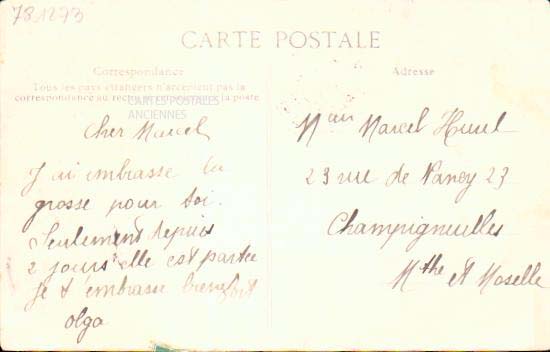 781293
CARTE POSTALE
Correspondance
Tous les pays étrangers n'acceptent pas la
correspondance au recto
la poste
CARTES POSTALES
ANCIENNES
Cher Marcel
J'ai embrasse la
grosse pour toi.
Seulement depuis
2 jours elle est partie
Je t embrasse bien fort
Olga
Adresse
Marcel
23 rue de Nancy 23
Champigneulles
Mthe et Moselle